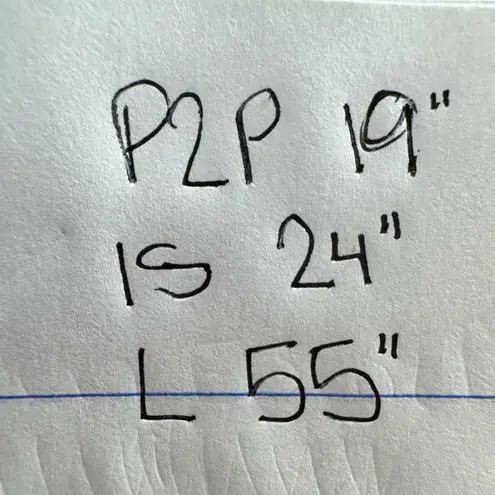 P2P 19"
IS 24"
L 55"